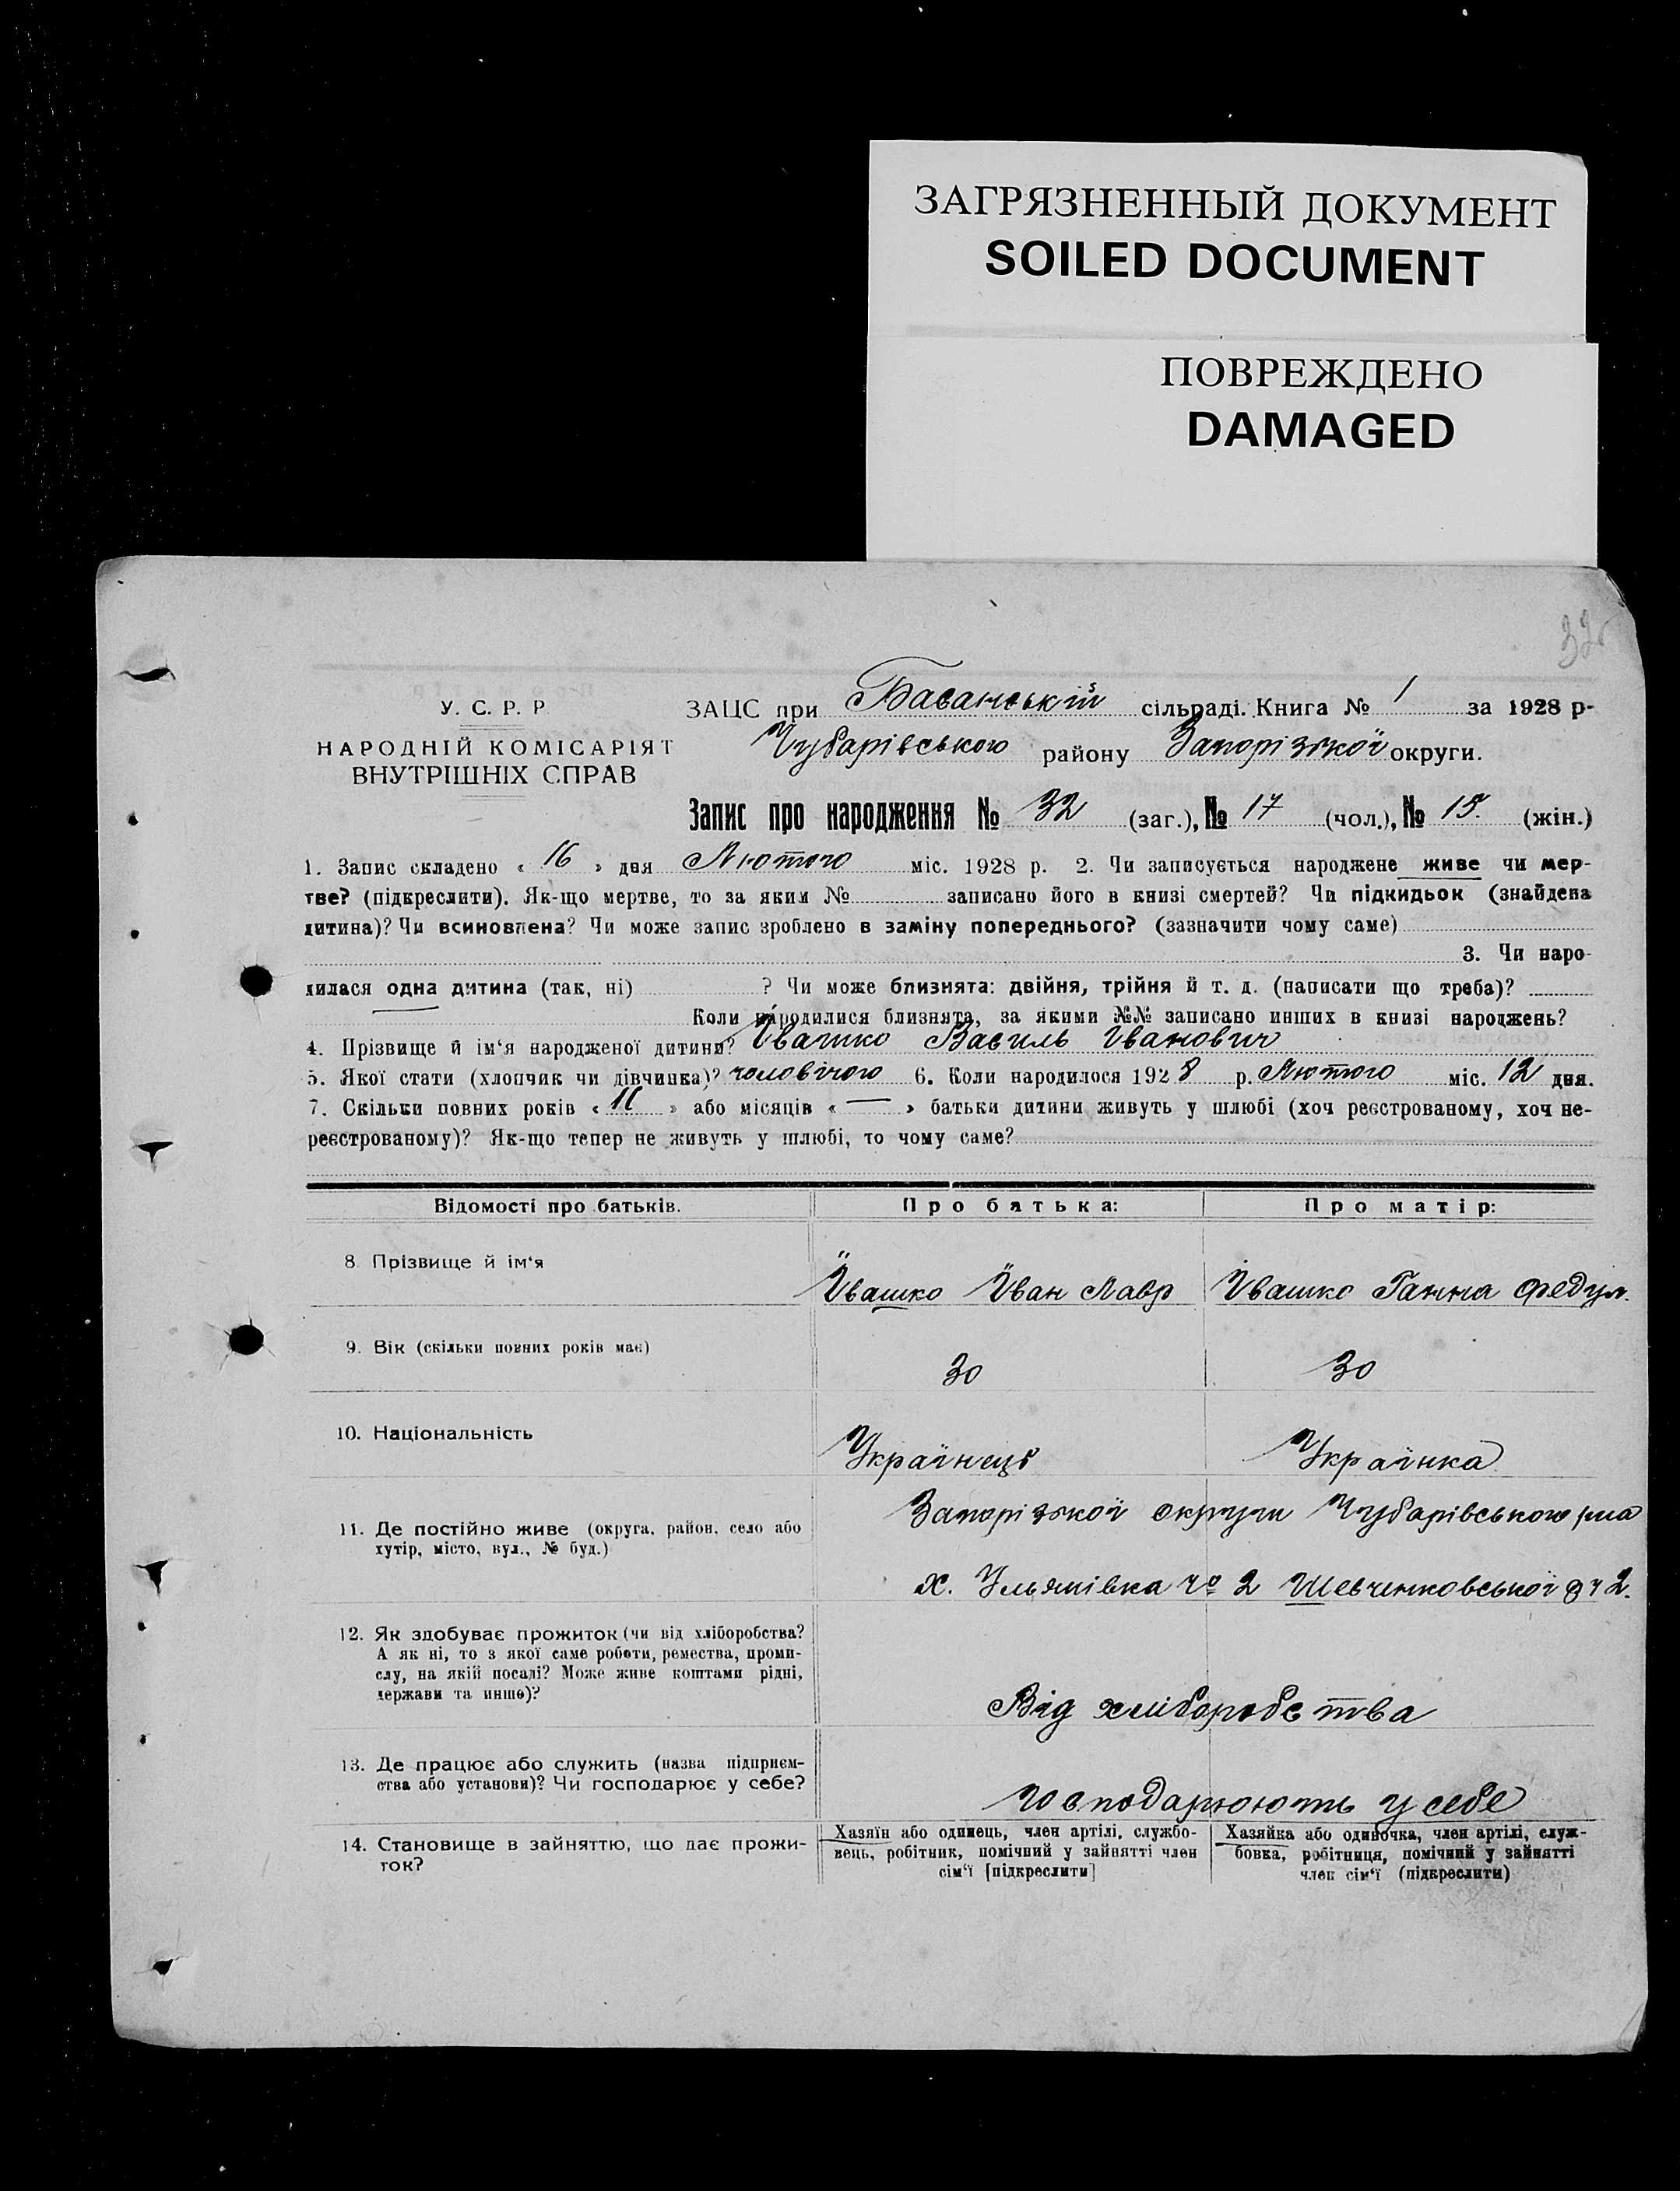 ЗАГРЯЗНЕННЫЙ ДОКУМЕНТ
SOILED DOCUMENT
ПОВРЕЖДЕНО
DAMAGED
32
У. С. Р. Р
НАРОДНІЙ КОМІСАРІЯТ
ВНУТРІШНІХ СПРАВ
ЗАЦС при Басанській сільраді. Книга № 1 за 1928 р-
Чубарівського району Запорізької округи.
Запис про народження № 32 (заг.), № 17 (чол.), № 15. (жін.)
1. Запис складено « 16 » дня Лютого міс. 1928 р. 2. Чи записується народжене живе чи мер-
тве? (підкреслити). Як-що мертве, то за яким № записано його в книзі смертей? Чи підкидьок (знайдена
дитина)? Чи всиновлена? Чи може запис зроблено в заміну попереднього? (зазначити чому саме)
3. Чи наро-
дилася одна дитина (так, ні) ? Чи може близнята: двійня, трійня й т. д. (написати що треба)?
Коли народилися близнята, за якими №№ записано инших в книзі народжень?
4. Прізвище й ім‘я народженої дитини? Івашко Василь Іванович
5. Якої стати (хлопчик чи дівчинка)? чоловічого 6. Коли народилося 1928 р. Лютого міс. 12 дня.
7. Скільки повних років « 11 » або місяців « — » батьки дитини живуть у шлюбі (хоч реєстрованому, хоч не-
реєстрованому)? Як-що тепер не живуть у шлюбі, то чому саме?
Відомості про батьків. Про батька: Про матір:
8. Прізвище й ім‘я Івашко Іван Лавр Івашко Ганна Федул.
9. Вік (скільки повних років має) 30 30
10. Національність Українець Українка
11. Де постійно живе (округа, район, село або
хутір, місто, вул., № буд.)
Запорізької округи Чубарівського
х. Ульянівка № 2 Шевченковської 2.
12. Як здобуває прожиток (чи від хліборобства?
А як ні, то з якої саме роботи, ремества, проми-
слу, на якій посаді? Може живе коштами рідні,
держави та инше)?
Від хліборобства
13. Де працює або служить (назва підприєм-
ства або установи)? Чи господарює у себе?
господарюють у себе
14. Становище в зайняттю, що дає прожи-
ток?
Хазяїн або одинець, член артілі, службо-
вець, робітник, помічний у зайнятті член
сім‘ї [підкреслити]
Хазяйка або одиночка, член артілі, служ-
бовка, робітниця, помічний у зайнятті
член сім‘ї (підкреслити)